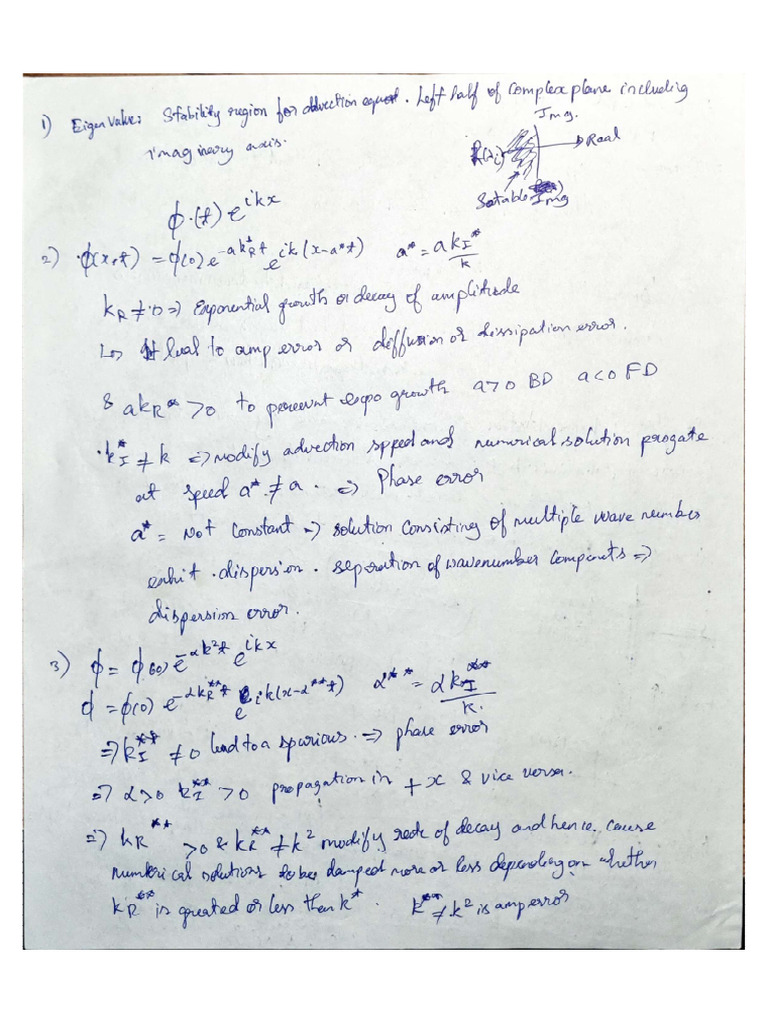 1) Eigen Value: Stability region for advection equat. Left half of complex plane including
imaginery axis.
Img.
R(λi)
Real
Stable
Img
φ.(t) e^{ikx}
2) φ(x,t) = φ(0) e^{-ak_R^* t} e^{ik(x-a^*t)} a^* = ak_I^*/k
k_R ≠ 0 => Exponential growth or decay of amplitude
↳ It lead to amp error or diffusion or dissipation error.
& ak_R^* > 0 to prevent expo growth a>0 BD a<0 FD
. k_I^* ≠ k => modify advection speed and numerical solution progate
at speed a^* ≠ a. => Phase error
a^* = Not constant => solution consisting of multiple wave number
exhit . dispersion . seperation of wavenumber componets =>
dispersion error.
3) φ = φ(0) e^{-αk²t} e^{ikx}
φ = φ(0) e^{-αk_R^{**}t} e^{ik(x-α^{**}t)} α^{**} = αk_I^{**}/k.
=> k_I^{**} ≠ 0 lead to a spurious. => phase error
=> α>0 k_I^{**} > 0 propagation in +x & vice versa.
=> k_R^{**} > 0 & k_R^{**} ≠ k² modify rate of decay and hence. cause
numerical solutions to be damped more or less depending on whether
k_R^{**} is greated or less then k^*. k^{**} ≠ k² is amp error